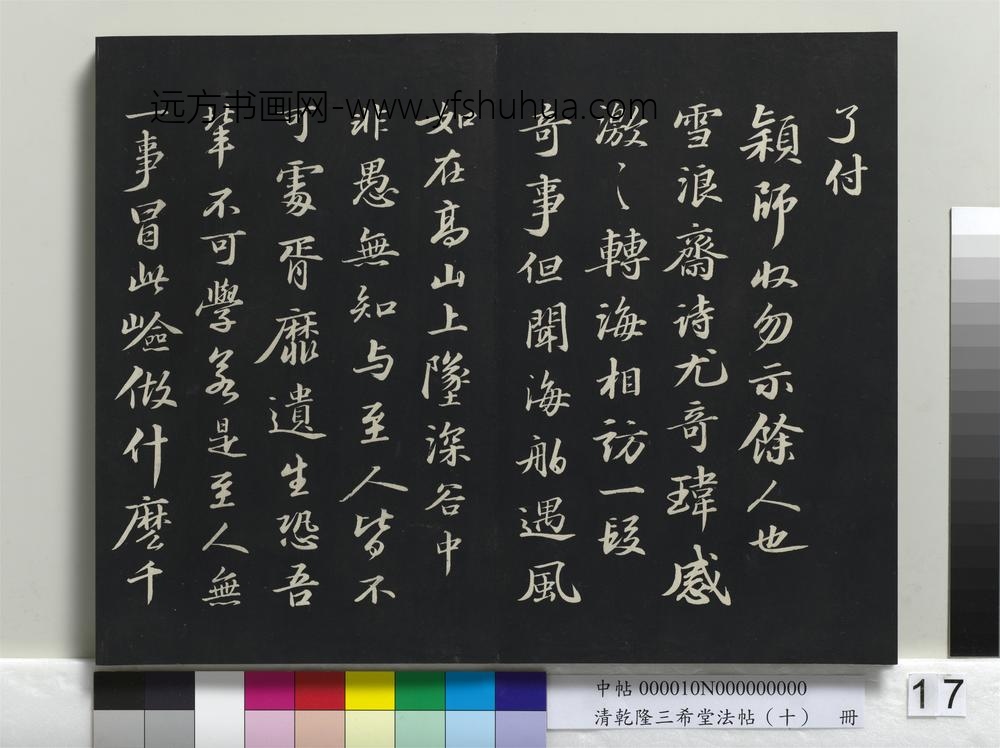 远方书画网-www.yfshuhua.com
了付
穎師收勿示餘人也
雪浪齋诗尤奇瑋感
激〻轉海相訪一段
奇事但聞海舶遇風
如在高山上墜深谷中
非愚無知与至人皆不
可處胥靡遺生恐吾
輩不可學若是至人無
一事冒此嶮做什麽千
中帖 000010N000000000
清乾隆三希堂法帖（十） 冊
17